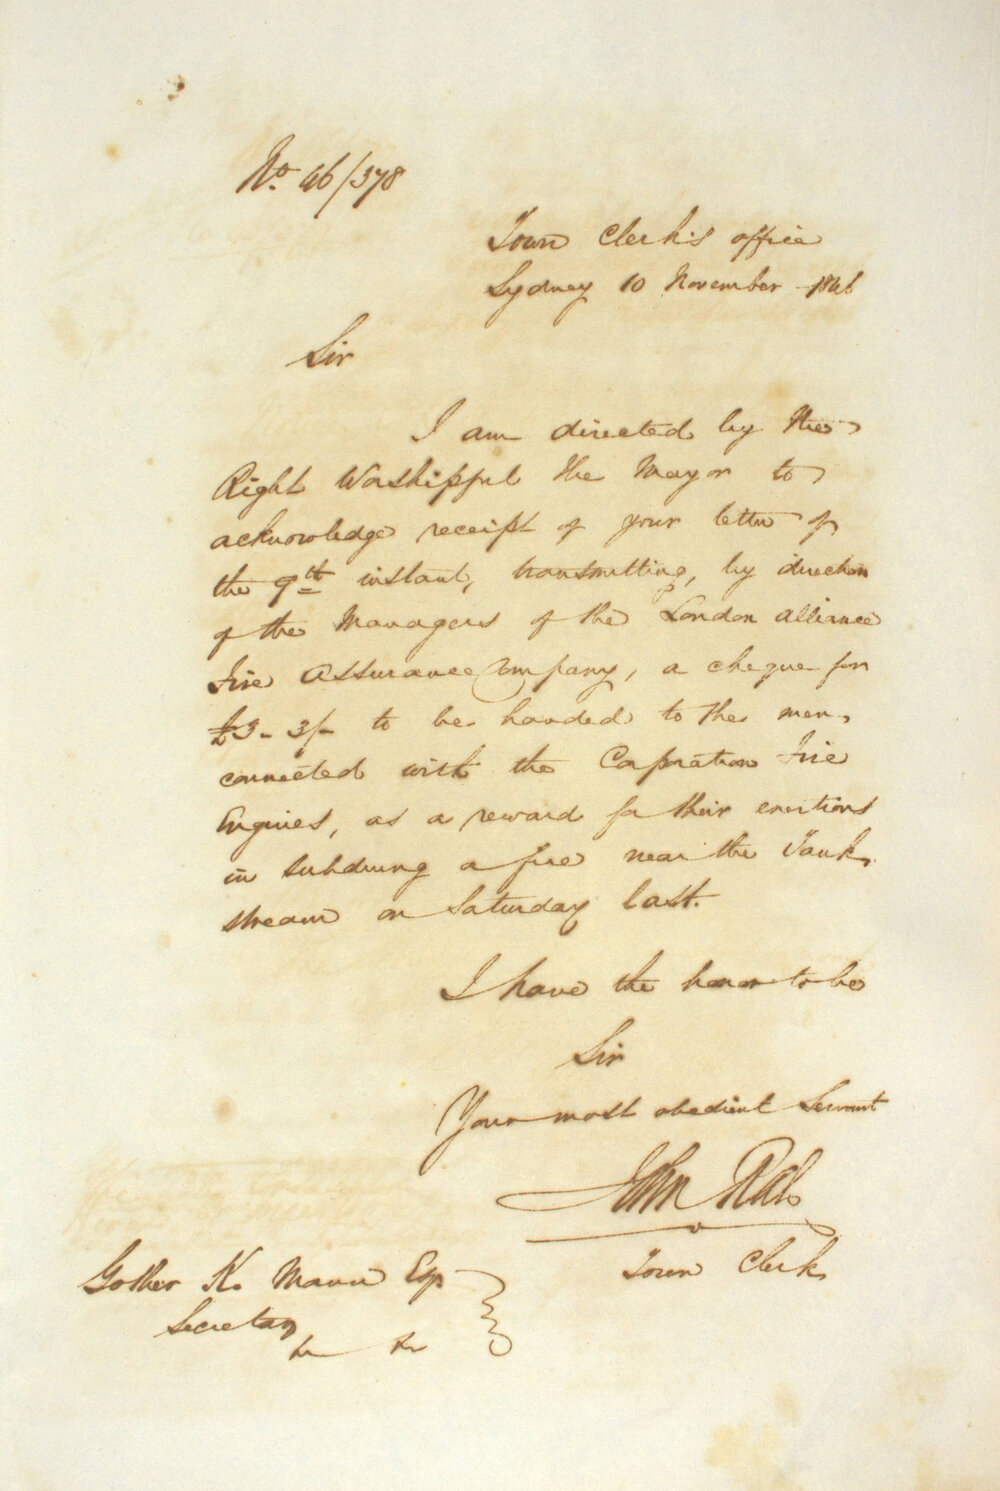 No. 46/378
Town Clerk's office
Sydney 10 November 1846
Sir
I am directed by the
Right Worshipful the Mayor to
acknowledge receipt of your letter of
the 9th instant, transmitting, by direction
of the Managers of the London alliance
Fire Assurance Company, a cheque for
£3-3/- to be handed to the men,
connected with the Corporation Fire
Engines, as a reward for their exertions
in subduing a fire near the Tank
stream on Saturday last.
I have the honor to be
Sir
Your most obedient Servant
John Rae
Town Clerk
Gother K. Mann Esq
Secretary
&c &c